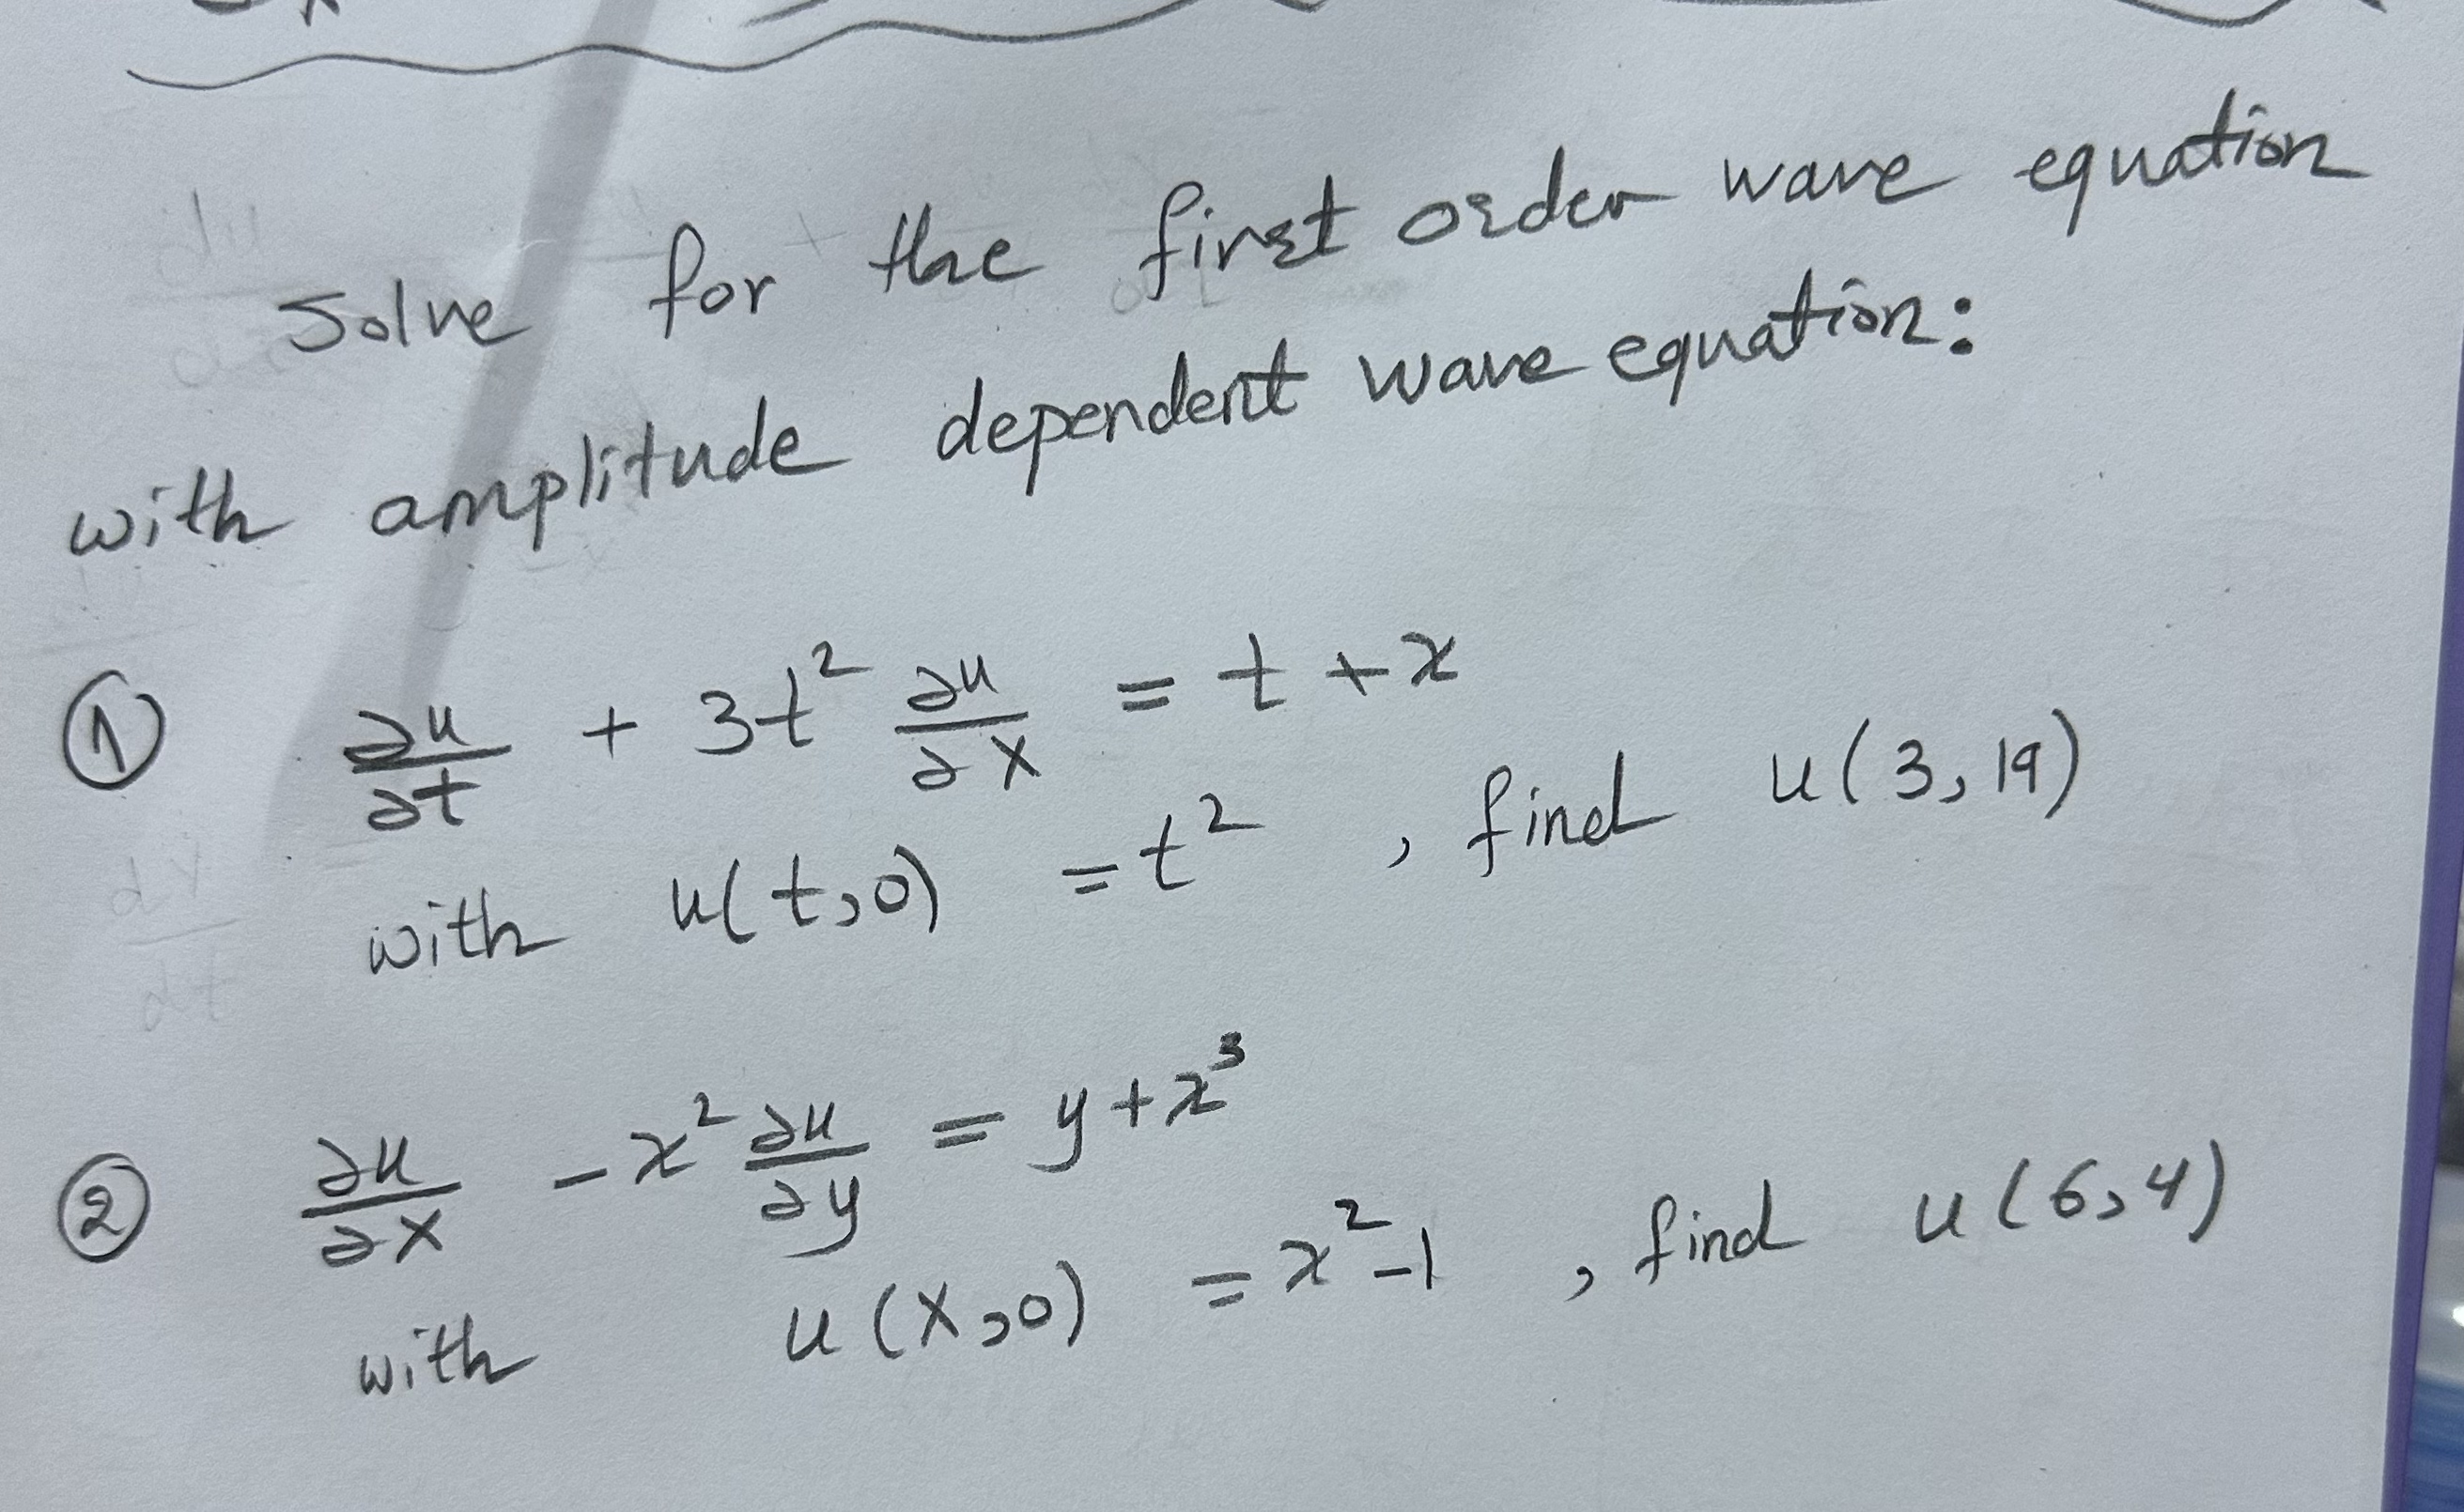 Solve for the first order wave equation
with amplitude dependent wave equation:
① ∂u/∂t + 3t² ∂u/∂x = t + x
with u(t,0) = t² , find u(3,19)
② ∂u/∂x - x² ∂u/∂y = y + x³
with u(x,0) = x²-1 , find u(6,4)